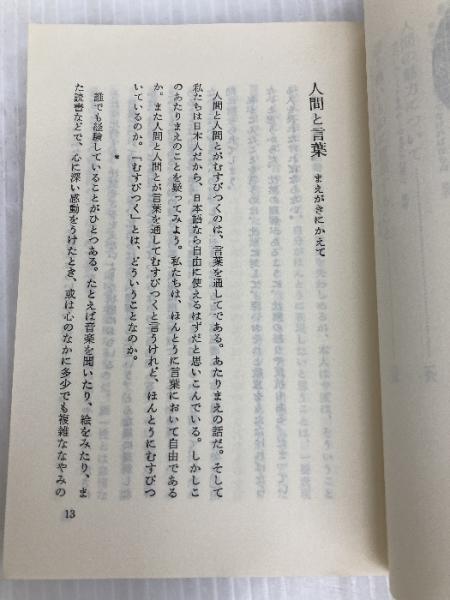 人間と言葉 まえがきにかえて
人間と人間とがむすびつくのは、言葉を通してである。あたりまえの話だ。そして
私たちは日本人だから、日本語なら自由に使えるはずだと思いこんでいる。しかしこ
のあたりまえのことを疑ってみよう。私たちは、ほんとうに言葉において自由である
か。また人間と人間とが言葉を通してむすびつくと言うけれど、ほんとうにむすびつ
いているのか。「むすびつく」とは、どういうことなのか。
*
誰でも経験していることがひとつある。たとえば音楽を聞いたり、絵をみたり、ま
た読書などで、心に深い感動をうけたとき、或は心のなかに多少でも複雑ななやみの
13